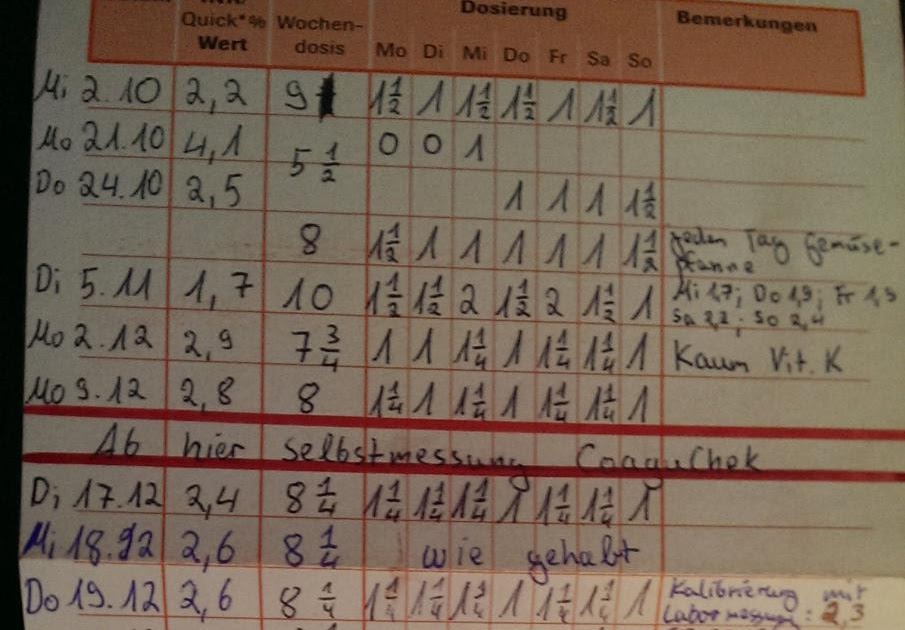 Quick*% Wochen- Dosierung Bemerkungen
Wert dosis Mo Di Mi Do Fr Sa So
Mi 2.10 2,2 9 1 1/2 1 1 1/2 1 1/2 1 1 1/2 1
Mo 21.10 4,1 5 1/2 0 0 1
Do 24.10 2,5 1 1 1 1 1/2
8 1 1/2 1 1 1 1 1 1 1/2 jeden Tag Gemüse-
pfanne
Di 5.11 1,7 10 1 1/2 1 1/2 2 1 1/2 2 1 1/2 1 Mi 1,7; Do 1,9; Fr 1,9
Sa 2,2; So 2,4
Mo 2.12 2,9 7 3/4 1 1 1 1/4 1 1 1/4 1 1/4 1 Kaum Vit. K
Mo 9.12 2,8 8 1 1/4 1 1 1/4 1 1 1/4 1 1/4 1
Ab hier Selbstmessung CoaguChek
Di 17.12 2,4 8 1/4 1 1/4 1 1/4 1 1/4 1 1 1/4 1 1/4 1
Mi 18.12 2,6 8 1/4 wie gehabt
Do 19.12 2,6 8 1/4 1 1/4 1 1/4 1 1/4 1 1 1/4 1 1/4 1 Kalibrierung mit
Labormessung: 2,3